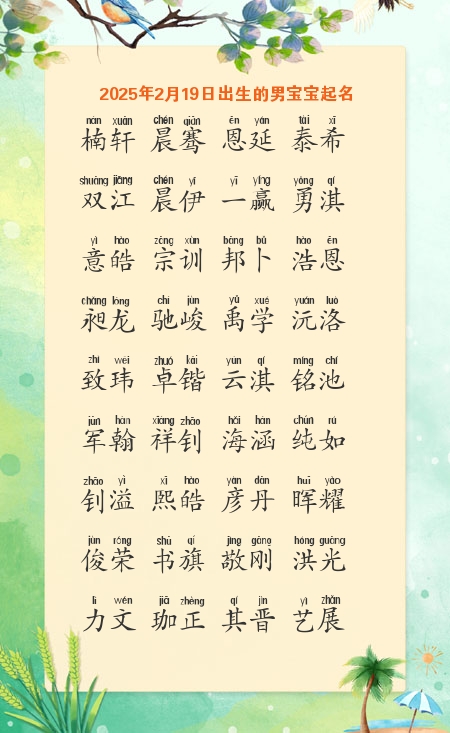 2025年2月19日出生的男宝宝起名
nán xuān chén qiān ēn yán tài xī
楠轩 晨骞 恩延 泰希
shuāng jiāng chén yī yī yíng yǒng qí
双江 晨伊 一赢 勇淇
yì hào zōng xùn bāng bǔ hào ēn
意皓 宗训 邦卜 浩恩
chǎng lóng chí jùn yǔ xué yuán luò
昶龙 驰峻 禹学 沅洛
zhì wěi zhuó kǎi yún qí míng chí
致玮 卓锴 云淇 铭池
jūn hàn xiáng zhāo hǎi hán chún rú
军翰 祥钊 海涵 纯如
zhāo yì xī hào yàn dān huī yào
钊溢 熙皓 彦丹 晖耀
jùn róng shū qí jìng gāng hóng guāng
俊荣 书旗 敬刚 洪光
lì wén jiā zhèng qí jìn yì zhǎn
力文 珈正 其晋 艺展